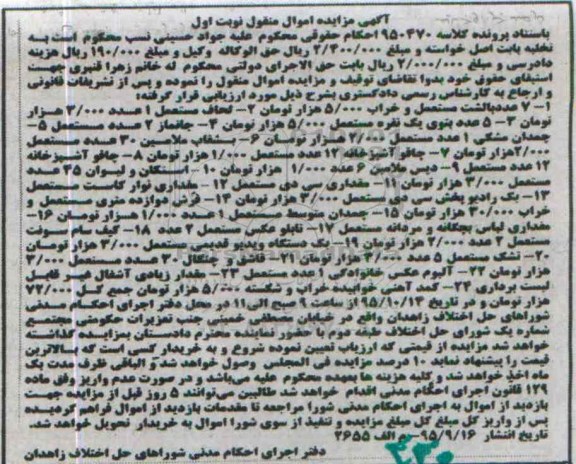 آگهی مزایده اموال منقول نوبت اول
باستناد پرونده کلاسه 950470 احکام حقوقی محکوم علیه جواد حسینی نسب محکوم است به
تخلیه بابت اصل خواسته و مبلغ 2/400/000 ریال حق الوکاله وکیل و مبلغ 190/000 ریال هزینه
دادرسی و مبلغ 2/000/000 ریال بابت حق الاجرای دولتی محکوم له خانم زهرا قنبری جهت
استیفای حقوق خود بدوا تقاضای توقیف و مزایده اموال منقول را نموده و پس از تشریفات قانونی
و ارجاع به کارشناس رسمی دادگستری بشرح ذیل مورد ارزیابی قرار گرفته:
1- 7 عدد بالشت مستعمل و خراب 5/000 هزار تومان 2- لحاف مستعمل 1 عدد 3/000 هزار
تومان 3- 5 عدد پتوی یک نفره مستعمل 5/000 هزار تومان 4- جانماز 2 عدد مستعمل 5-
چمدان مشکی 1 عدد مستعمل 2/000 هزار تومان 6- بشقاب ملامین 30 عدد مستعمل
2/000 هزار تومان 7- چاقو آشپزخانه 12 عدد مستعمل 1/000 هزار تومان 8- چاقو آشپزخانه
12 عدد مستعمل 9- دیس ملامین 6 عدد 1/000 هزار تومان 10- استکان و لیوان 35 عدد
مستعمل 3/000 هزار تومان 11- مقداری سی دی مستعمل 12- مقداری نوار کاست مستعمل
13- یک رادیو پخش سی دی مستعمل 2/000 هزار تومان 14- فرش دوازده متری مستعمل و
خراب 30/000 هزار تومان 15- چمدان متوسط مستعمل 1 عدد 1/000 هزار تومان 16-
مقداری لباس بچگانه و مردانه مستعمل 17- تابلو عکس مستعمل 2 عدد 18- کیف سام سونت
مستعمل 2 عدد 2/000 هزار تومان 19- یک دستگاه ویدیو قدیمی مستعمل 3/000 هزار تومان
20- تشک مستعمل 5 عدد 3/000 هزار تومان 21- قاشق و چنگال 30 عدد مستعمل 3/000
هزار تومان 22- آلبوم عکس خانوادگی 1 عدد مستعمل 23- مقدار زیادی آشغال غیر قابل
لیست برداری 24- کمد آهنی خوابیده خراب و شکسته 5/000 هزار تومان جمع کل 72/000
هزار تومان و در تاریخ 95/10/14 از ساعت 9 صبح الی 11 در محل دفتر اجرای احکام مدنی
شوراهای حل اختلاف زاهدان واقع در خیابان مصطفی خمینی جنب تعزیرات حکومتی مجتمع
شماره یک شورای حل اختلاف طبقه دوم با حضور نماینده محترم دادستان بمزایده گذاشته
خواهد شد مزایده از قیمتی که ارزیاب تعیین نموده شروع و به خریدار کسی است که بالاترین
قیمت را پیشنهاد نماید 10 درصد مزایده فی المجلس وصول خواهد شد و الباقی ظرف مدت یک
ماه اخذ خواهد شد و کلیه هزینه ها بعهده محکوم علیه می‌باشد و در صورت عدم واریز وفق ماده
129 قانون اجرای احکام مدنی اقدام خواهد شد طالبین می‌توانند 5 روز قبل از مزایده جهت
بازدید از اموال به اجرای احکام مدنی شورا مراجعه تا مقدمات بازدید از اموال فراهم گردیده
پس از واریز کل مبلغ کل مبلغ مزایده و تنفیذ از سوی شورا اموال به خریدار تحویل خواهد شد.
تاریخ انتشار 95/9/16- م الف 2655
دفتر اجرای احکام مدنی شوراهای حل اختلاف زاهدان